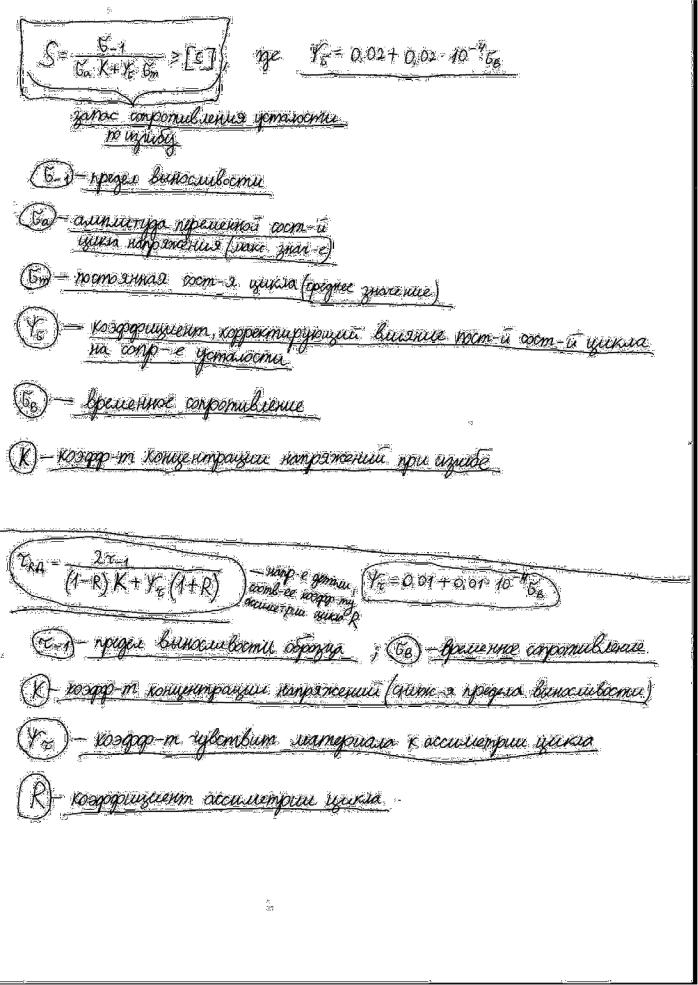 S = σ₋₁ / (σₐ · K + ψ_σ · σₘ) ≥ [S], где ψ_σ = 0,02 + 0,02 · 10⁻⁴ σ_в
запас сопротивления усталости
по изгибу
σ₋₁ – предел выносливости
σₐ – амплитуда переменной сост-й
цикла напряжения (макс. знач-е)
σₘ – постоянная сост-я цикла (среднее значение)
ψ_σ – коэффициент, корректирующий влияние пост-й сост-й цикла
на сопр-е усталости
σ_в – временное сопротивление
K – коэфф-т концентрации напряжений при изгибе
τ_RД = 2τ₋₁ / ((1-R) K + ψ_τ (1+R)) – напр-е детали, ψ_τ = 0,01 + 0,01 · 10⁻⁴ σ_в
соотв-ее коэфф-ту
ассиметрии цикла R
τ₋₁ – предел выносливости образца ; σ_в – временное сопротивление.
K – коэфф-т концентрации напряжений (сниж-я предела выносливости)
ψ_τ – коэффф-т чувствит материала к ассиметрии цикла
R – коэффициент ассиметрии цикла.